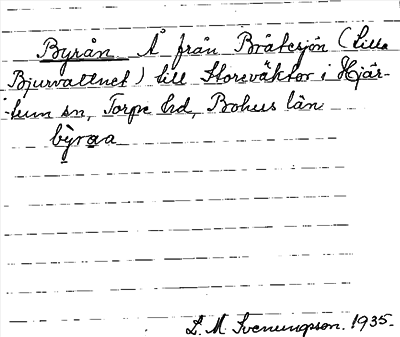 Byrån Å från Bråtesjön (Lilla
Bjurvattnet) till Storeväktor i Hjär-
tum sn, Torpe hd, Bohus län
by̆raa
S. M. Svenungsson. 1935.